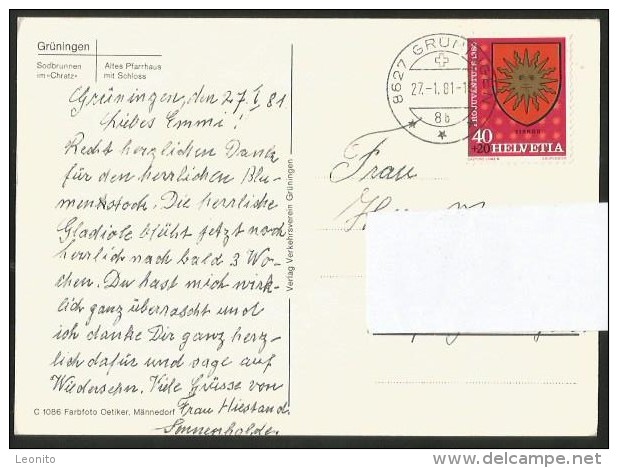 Grüningen
Sodbrunnen
im «Chratz»
Altes Pfarrhaus
mit Schloss
Grüningen, den 27. 1. 81.
Liebes Emmi!
Recht herzlichen Dank
für den herrlichen Blu-
menstoch. Die herrliche
Gladiole blüht jetzt noch
herrlich nach bald 3 Wo-
chen. Du hast mich wirk-
lich ganz überrascht und
ich danke Dir ganz herz-
lich dafür und sage auf
Wiedersehn. Viele Grüsse von
Frau Hiestand
Sonnenhalde
C 1086 Farbfoto Oetiker, Männedorf
Verlag Verkehrsverein Grüningen
8627 GRÜN
27.-1.81-1
8b
PRO JUVENTUTE 1980
40
+20 HELVETIA
Frau